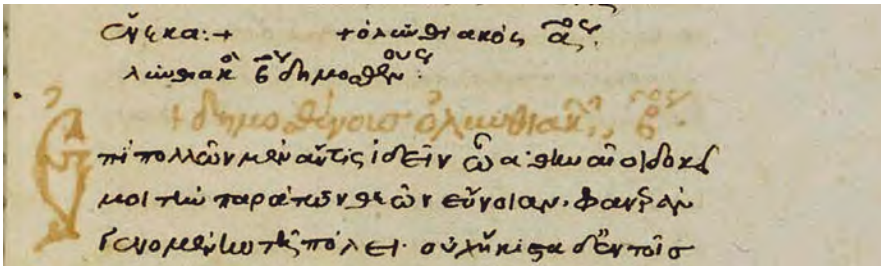 οὕνεκα:+ +ὀλυνθιακός α^ος:
λυνθιακ^ὸς β^ος δημοσθένους:
+ δημοσθένους ὀλυνθιακ β^ος.
Ἐπὶ πολλῶν μὲν ἄν τις ἰδεῖν ὦ α: θηναῖοι δοκεῖ
μοι τὴν παρὰ τῶν θεῶν εὔνοιαν. φανερὰν
γενομένην τῇ πόλει. οὐχ ἥκιστα δὲ ἐν τοῖσ